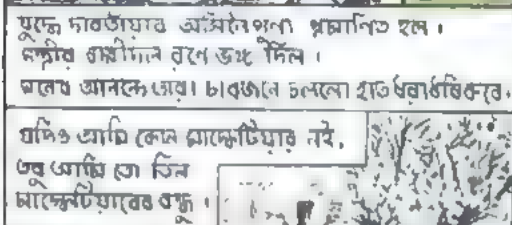 যুদ্ধে দারতাঁয়ার অসিনৈপুণ্য প্রমাণিত হল।
মন্ত্রীর রক্ষীদল রণে ভঙ্গ দিল।
মনের আনন্দে ওরা চারজনে চললো হাত ধরাধরি করে।
যদিও আমি কোন মাস্কেটিয়ার নই,
তবু আমি তো তিন
মাস্কেটিয়ারের বন্ধু।